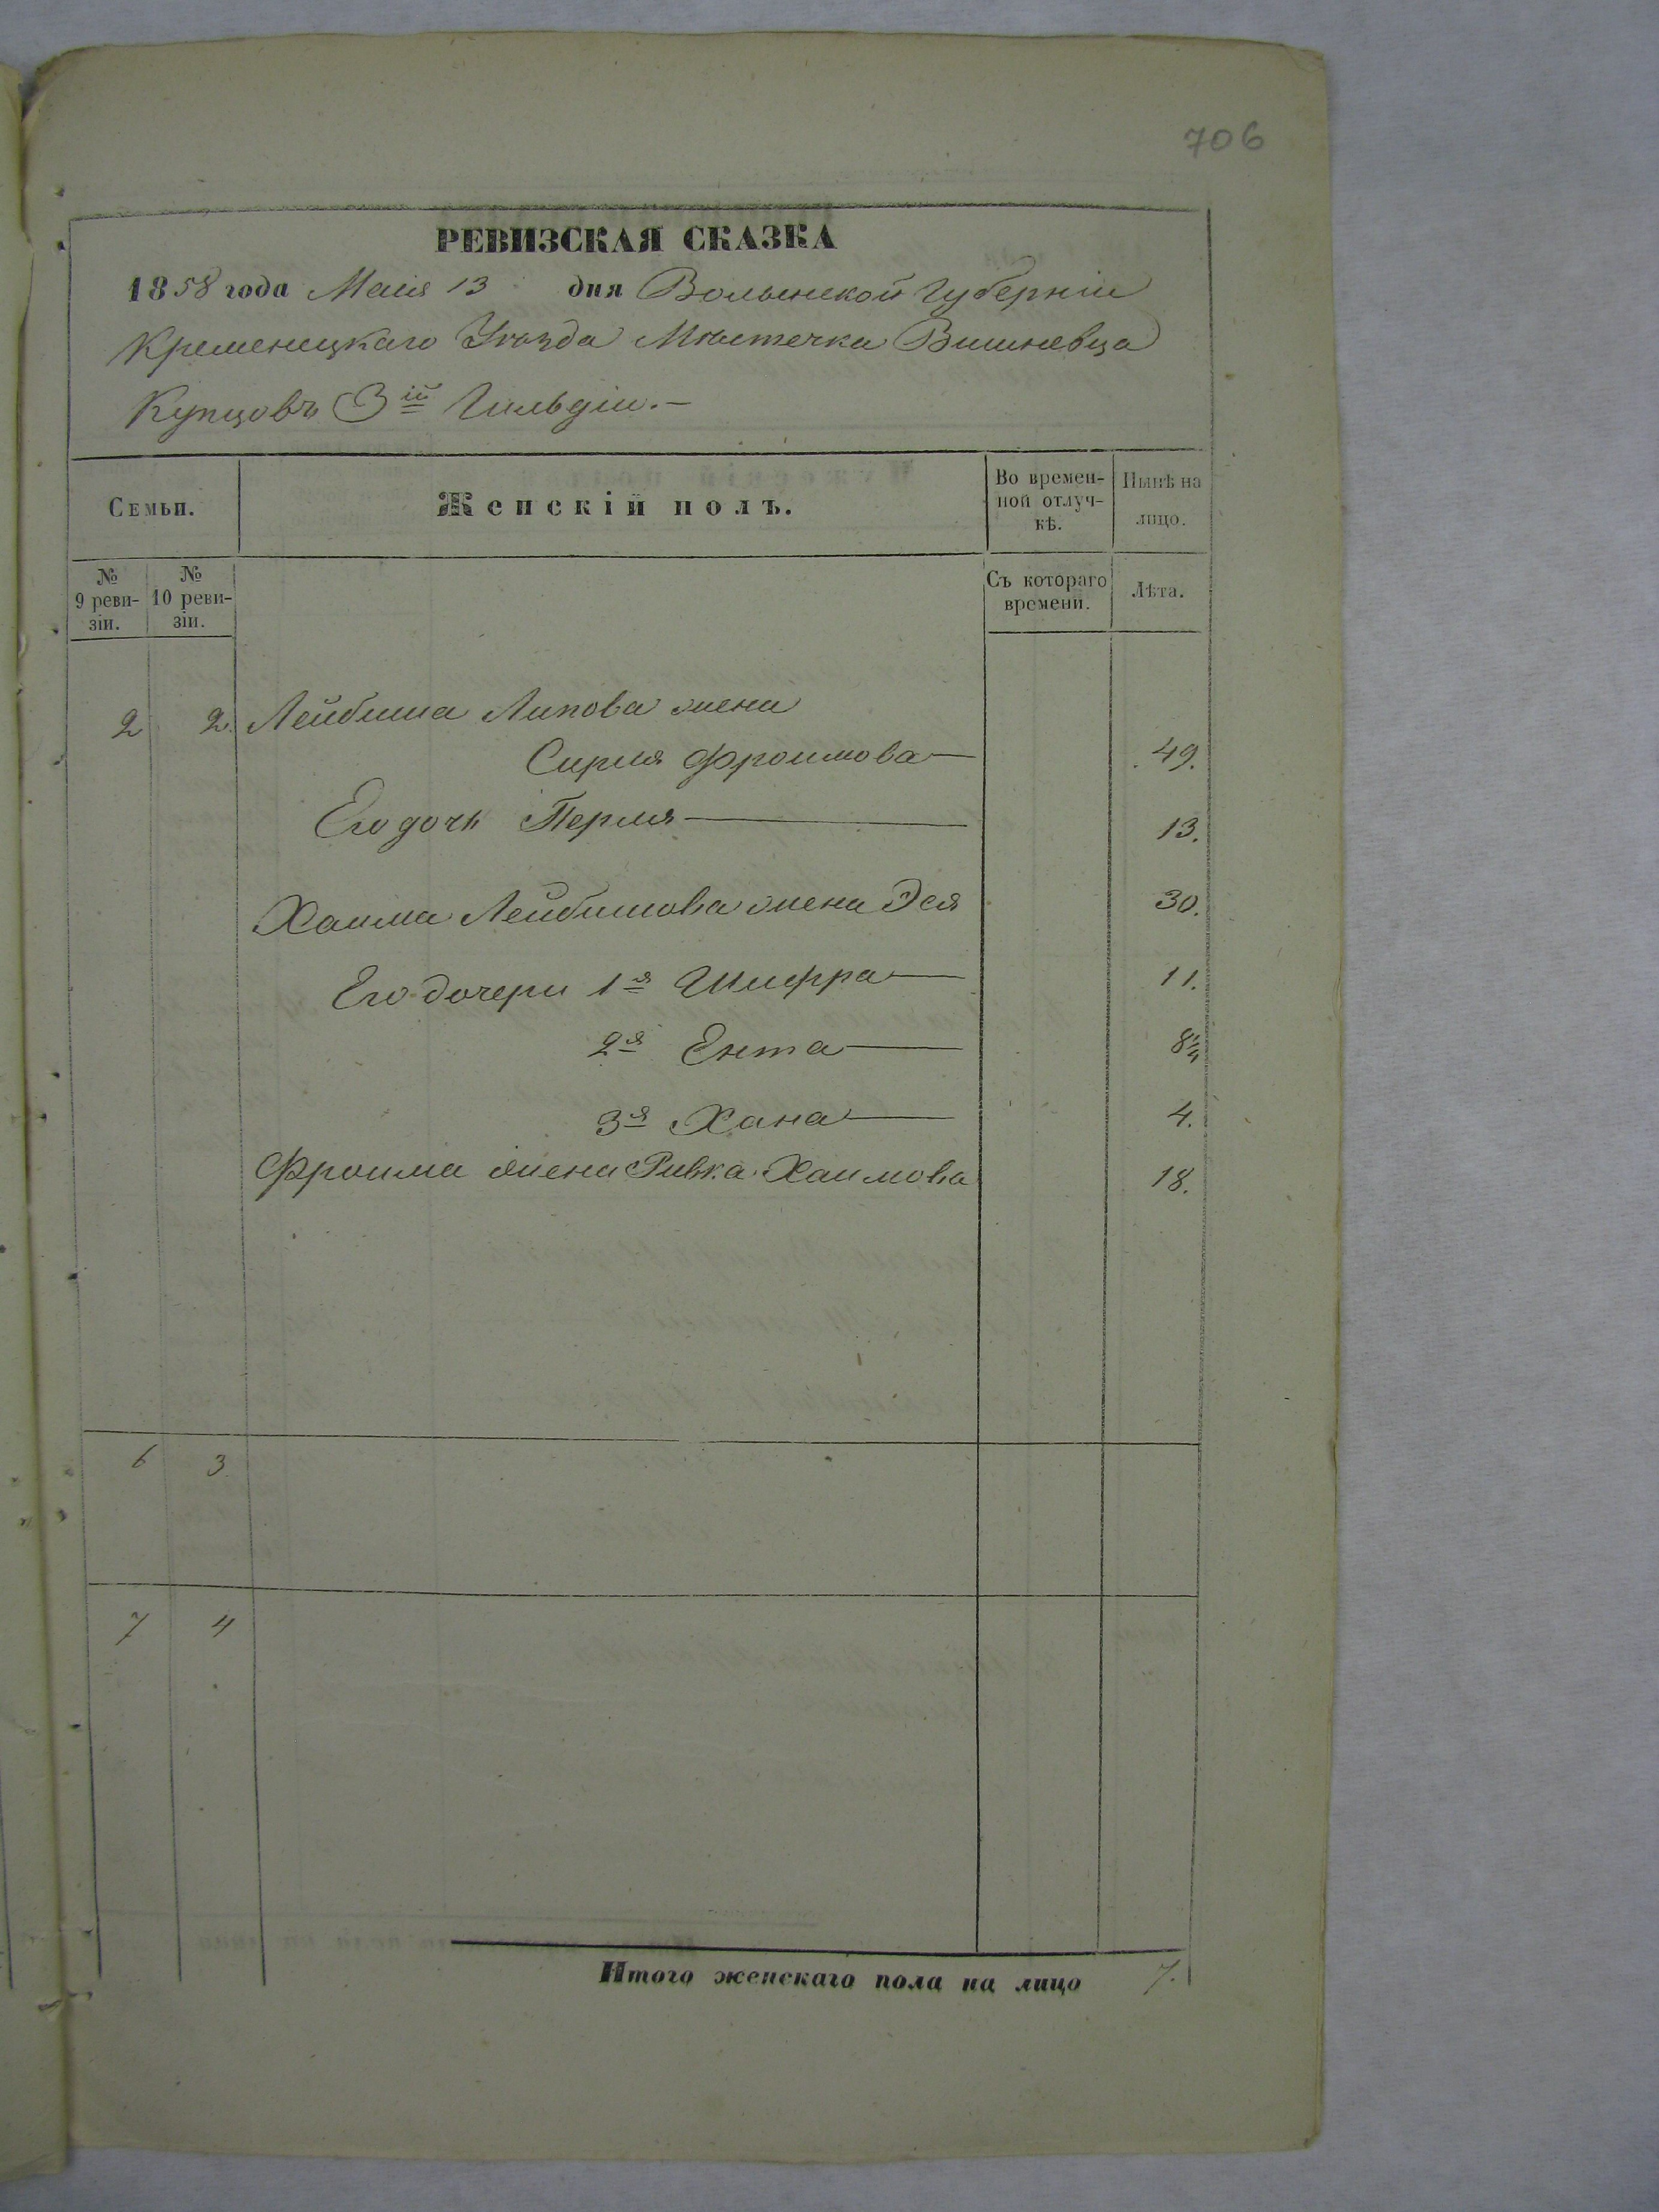 706
РЕВИЗСКАЯ СКАЗКА
1858 года Маия 13 дня Волынской Губерніи
Кременецкаго Уѣзда Мѣстечка Вишневца
Купцовъ 3ій Гильдіи.-
Семьи.
Женскій полъ.
Во времен-
ной отлуч-
кѣ.
Нынѣ на
лицо.
№
9 реви-
зіи.
№
10 реви-
зіи.
Съ котораго
времени.
Лѣта.
2 2. Лейбиша Липова жена
Сирля Фроимова 49.
Его дочь Перля 13.
Хаима Лейбишова жена Эся 30.
Его дочери 1я Шифра 11.
2я Ента 8 1/4
3я Хана 4.
Фроима жена Ривка Хаимова 18.
6 3.
7 4
Итого женскаго пола на лицо 7.